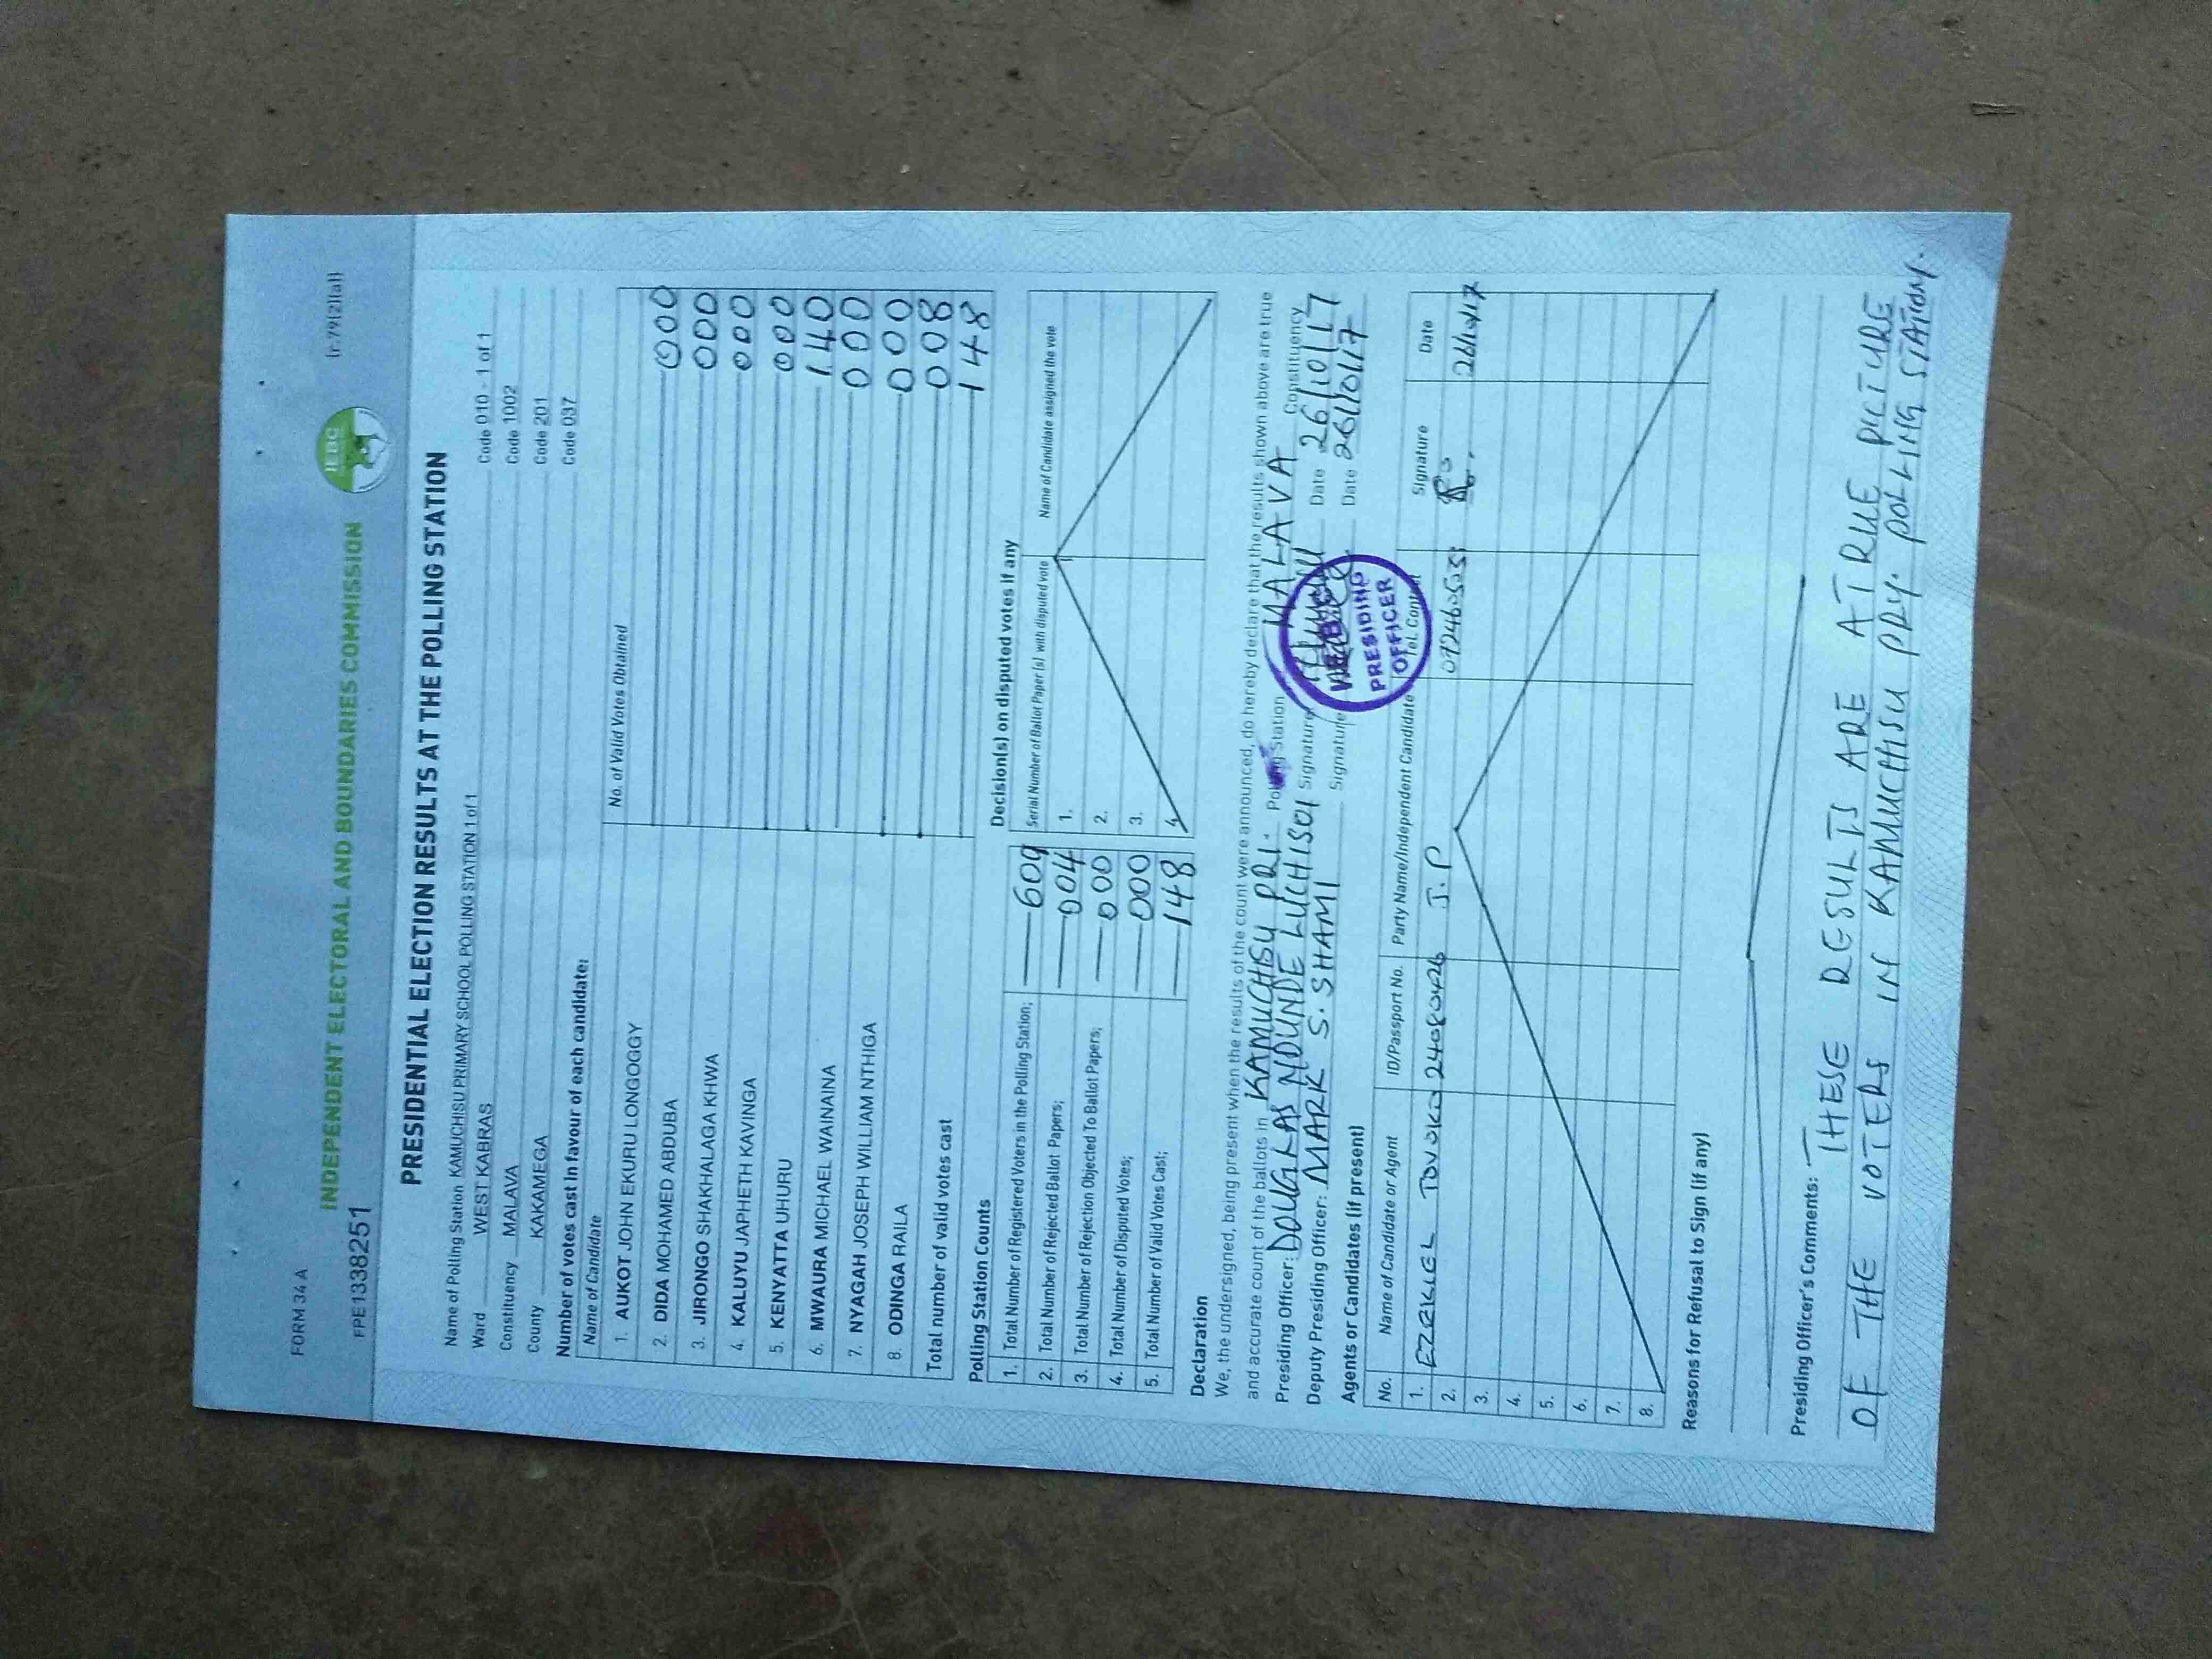 FORM 34 A (r.79(2)(a))
IEBC
INDEPENDENT ELECTORAL AND BOUNDARIES COMMISSION
FPE1338251
PRESIDENTIAL ELECTION RESULTS AT THE POLLING STATION
Name of Polling Station KAMUCHISU PRIMARY SCHOOL POLLING STATION 1 of 1 Code 010 - 1 of 1
Ward WEST KABRAS Code 1002
Constituency MALAVA Code 201
County KAKAMEGA Code 037
Number of votes cast in favour of each candidate:
Name of Candidate No. of Valid Votes Obtained
1. AUKOT JOHN EKURU LONGOGGY 000
2. DIDA MOHAMED ABDUBA 000
3. JIRONGO SHAKHALAGA KHWA 000
4. KALUYU JAPHETH KAVINGA 000
5. KENYATTA UHURU 140
6. MWAURA MICHAEL WAINAINA 000
7. NYAGAH JOSEPH WILLIAM NTHIGA 000
8. ODINGA RAILA 008
Total number of valid votes cast 148
Polling Station Counts Decision(s) on disputed votes if any
1. Total Number of Registered Voters in the Polling Station; 609 Serial Number of Ballot Paper (s) with disputed vote Name of Candidate assigned the vote
2. Total Number of Rejected Ballot Papers; 004 1.
3. Total Number of Rejection Objected To Ballot Papers; 000 2.
4. Total Number of Disputed Votes; 000 3.
5. Total Number of Valid Votes Cast; 148 4.
Declaration
We, the undersigned, being present when the results of the count were announced, do hereby declare that the results shown above are true
and accurate count of the ballots in KAMUCHISU PRI. Polling Station MALAVA Constituency
Presiding Officer: DOUGLAS NDUNDE LUCHISOI Signature Date 26/10/17
Deputy Presiding Officer: MARK S. SHAMI Signature Date 26/10/17
PRESIDING OFFICER
Agents or Candidates (if present)
No. Name of Candidate or Agent ID/Passport No. Party Name/Independent Candidate Tel. Contact Signature Date
1. EZEKIEL 24080426 J.P 26/10/17
2.
3.
4.
5.
6.
7.
8.
Reasons for Refusal to Sign (if any)
Presiding Officer's Comments: THESE RESULTS ARE A TRUE PICTURE
OF THE VOTERS IN KAMUCHISU PRY. POLLING STATION.